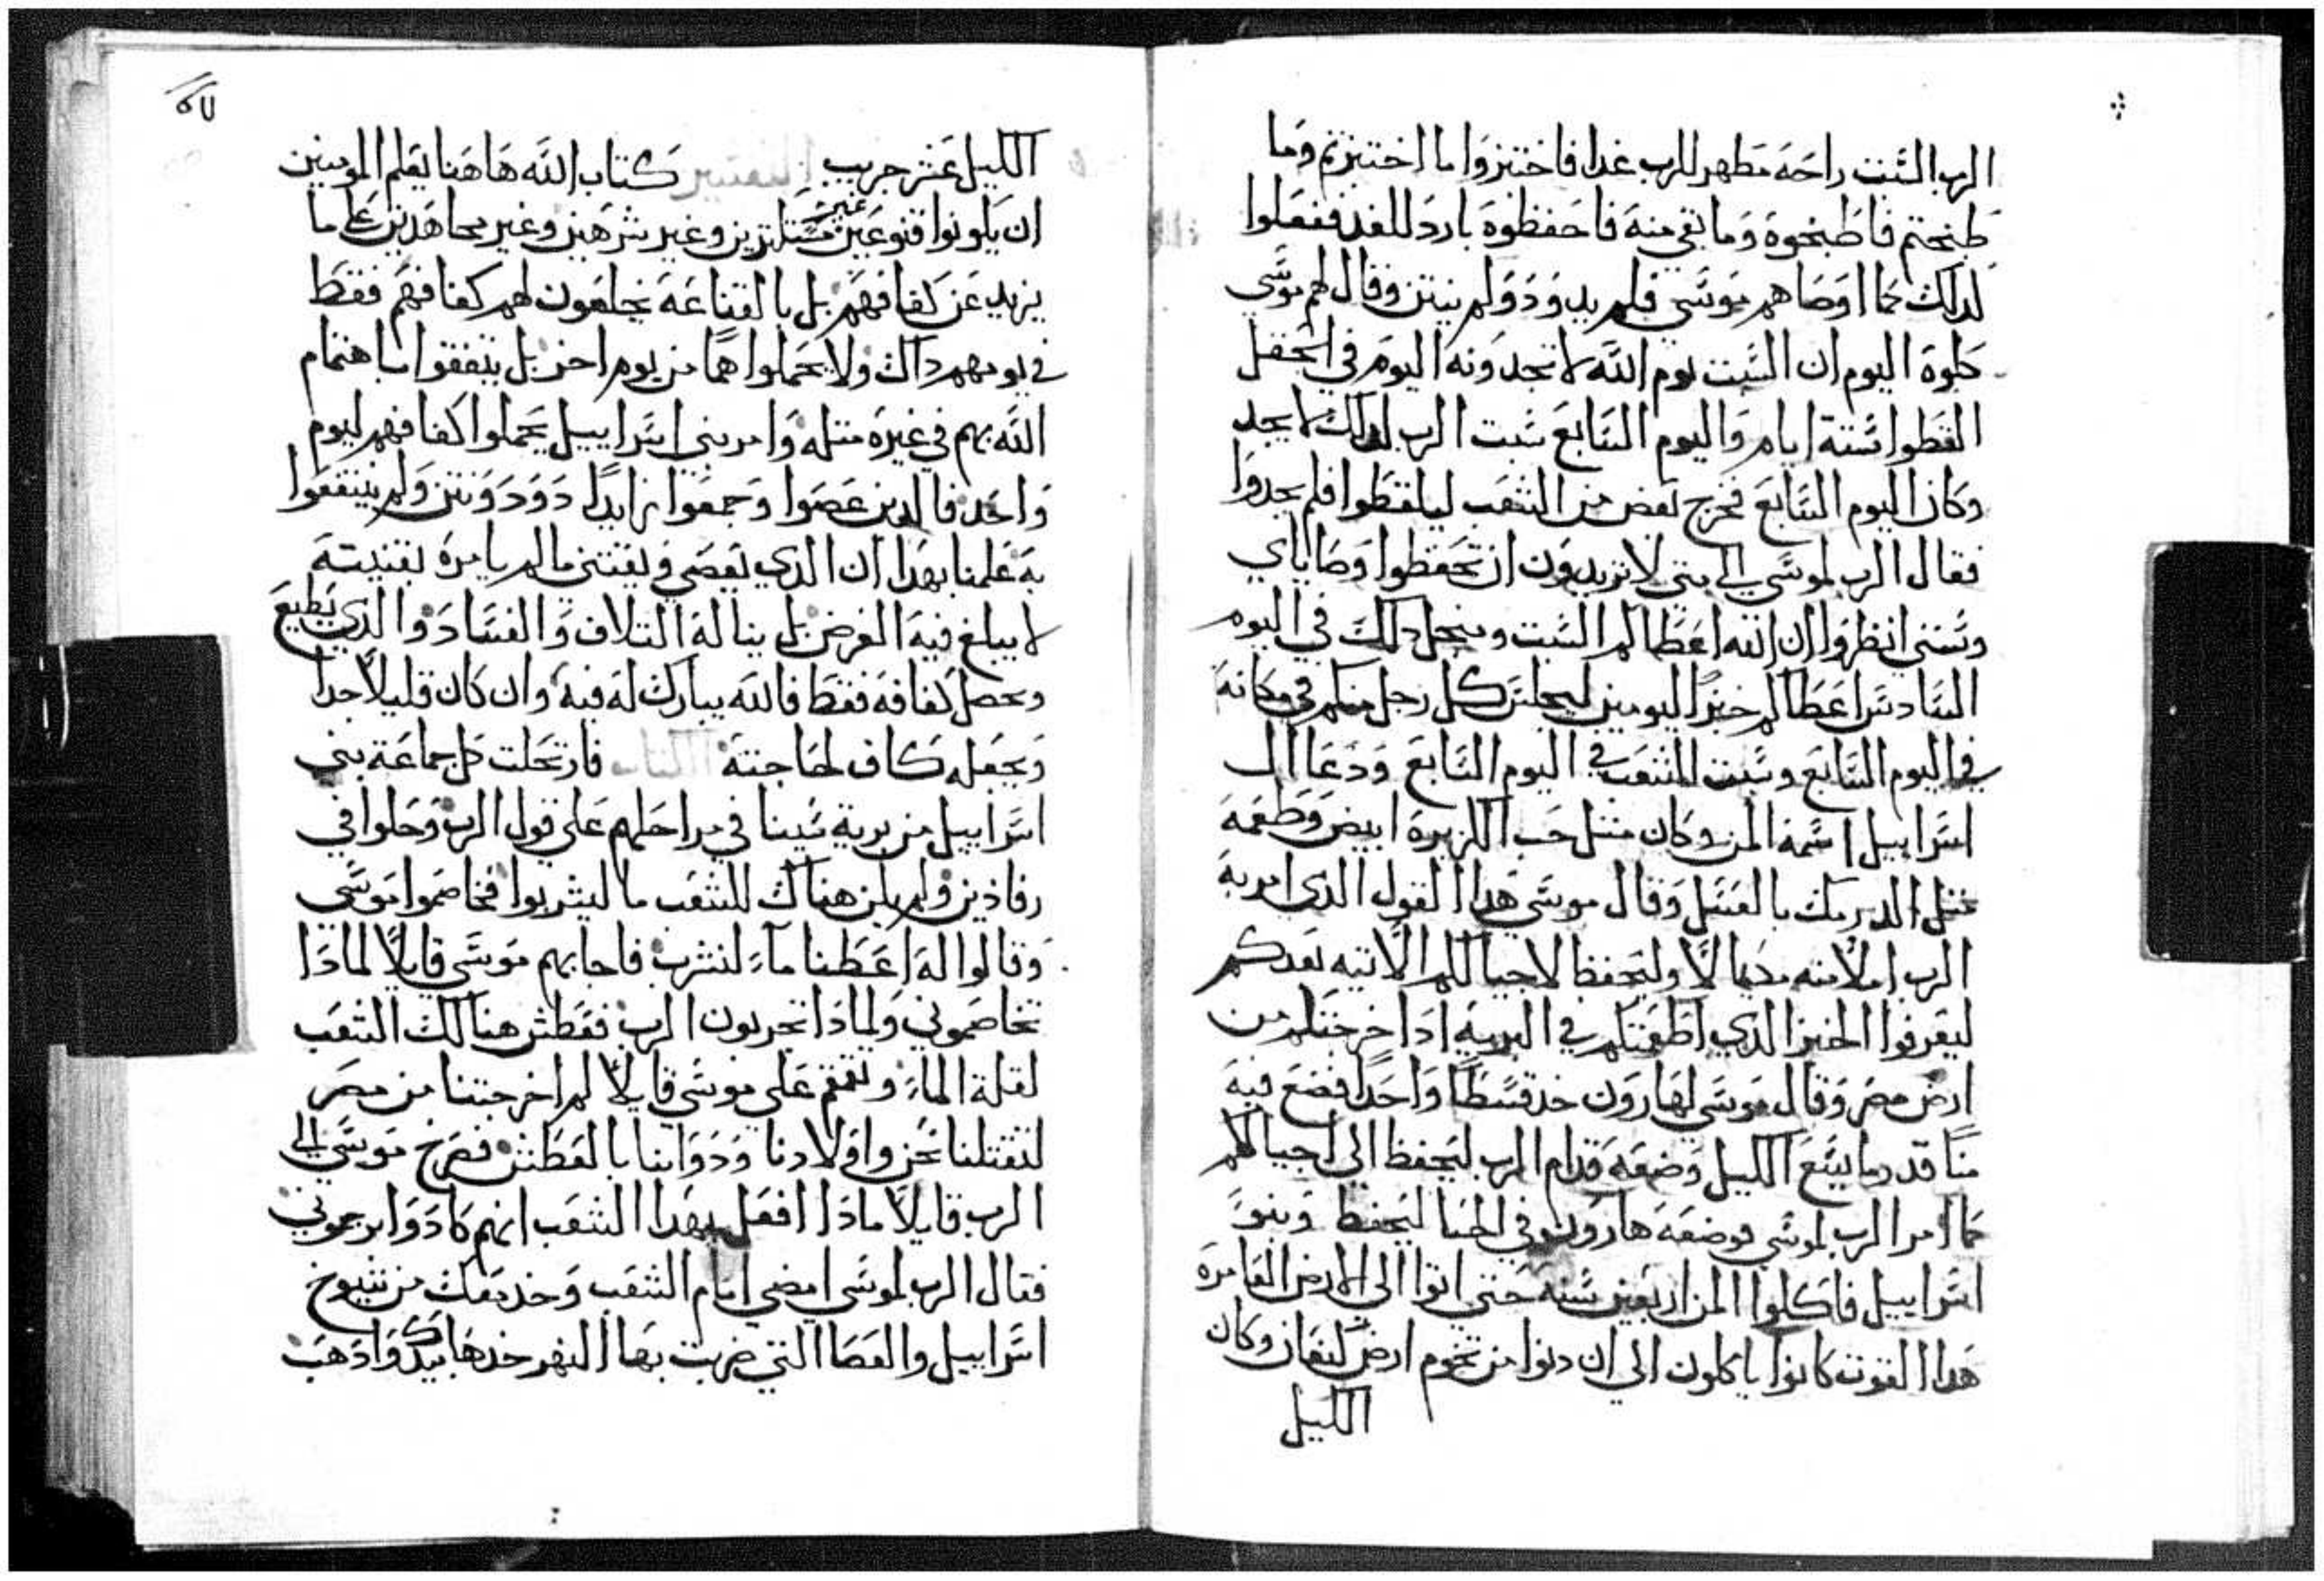 الرب السبت راحه مطهر للرب غدا فاختبزوا ما اختبزتم وما
طبختم فاطبخوه وما بقي منه فاحفظوه بارد للغد ففعلوا
لدلك كما اوصاهم موسي فلم يدود ولم ينتن وقال لهم موسي
كلوه اليوم ان السبت يوم الله لا تجدونه اليوم في الحقل
القطوا ستة ايام واليوم السابع سبت الرب لدلك لا يجد
وكان اليوم السابع فخرج بعض من الشعب ليلقطوا فلم يجدوا
فقال الرب لموسي الي متي لا تريدون ان تحفظوا وصاياي
وسنتي انظروا ان الله اعطاكم السبت دلك في اليوم
السادس اعطاكم خبز اليومين ليجلس كل رجل منكم في مكانه
في اليوم السابع وسبت الشعب في اليوم السابع ودعا ال
اسراييل اسمه المن وكان متل حب الكزبره ابيض وطعمه
متل الدرمك بالعسل وقال موسي هدا القول الدي امر به
الرب املا منه مكيالا وليحفظ لاجيالكم الاتيه بعدكم
ليعرفوا الخبز الدي اطعمتكم في البريه ادا خرجتكم من
ارض مصر وقال موسي لهارون خد قسطا واحدا فضع فيه
منا قدر ما يسع الكيل وضعه قدام الرب ليحفظ الي اجيالكم
كما امر الرب لموسي فوضعه هارون في الخبا ليحفظ وبنو
اسراييل فاكلوا المن اربعين سنه حتي اتوا الي الارض العامره
هدا القوت كانوا ياكلون الي ان دنوا من تخوم ارض كنعان وكان
الكيل
الكيل عشر جريب التفسير كتاب الله هاهنا يعلم المومنين
ان يكونوا قنوعين غير مستلزين وغير شرهين وغير مجاهدين علي ما
يزيد عن كفافهم بل بالقناعه يجمعون لهم كفافهم فقط
في يومهم داك ولا يحملوا هما من يوم اخر بل يتفقوا باهتمام
الله بهم في غيره متله وامر بني اسراييل يحملوا كفافهم ليوم
واحد فالدين عصوا وجمعوا زايدا دود ونتن ولم ينتفعوا
به علمنا بهدا ان الدي يعصي ويقتني ما لم يامره بقنيته
لا يبلغ فيه الغرض بل يناله التلاف والفساد والدي يطيع
ويحصل كفافه فقط فالله يبارك له فيه وان كان قليلا جدا
ويجعله كاف لحاجته الكتاب فارتحلت كل جماعة بني
اسراييل من برية سينا في مراحلهم علي قول الرب وحلوا في
رفادين ولم يكن هناك للشعب ما ليشربوا فخاصموا موسي
وقالوا له اعطنا ماء لنشرب فاجابهم موسي قايلا لمادا
تخاصموني ولمادا تجربون الرب فعطش هنالك الشعب
لقلة الماء وتقمقم علي موسي قايلا لم اخرجتنا من مصر
لتقتلنا نحن واولادنا ودوابنا بالعطش فصرخ موسي الي
الرب قايلا مادا افعل بهدا الشعب انهم كادوا يرجموني
فقال الرب لموسي امضي امام الشعب وخد معك من شيوخ
اسراييل والعصا التي ضربت بها النهر خدها بيدك وادهب